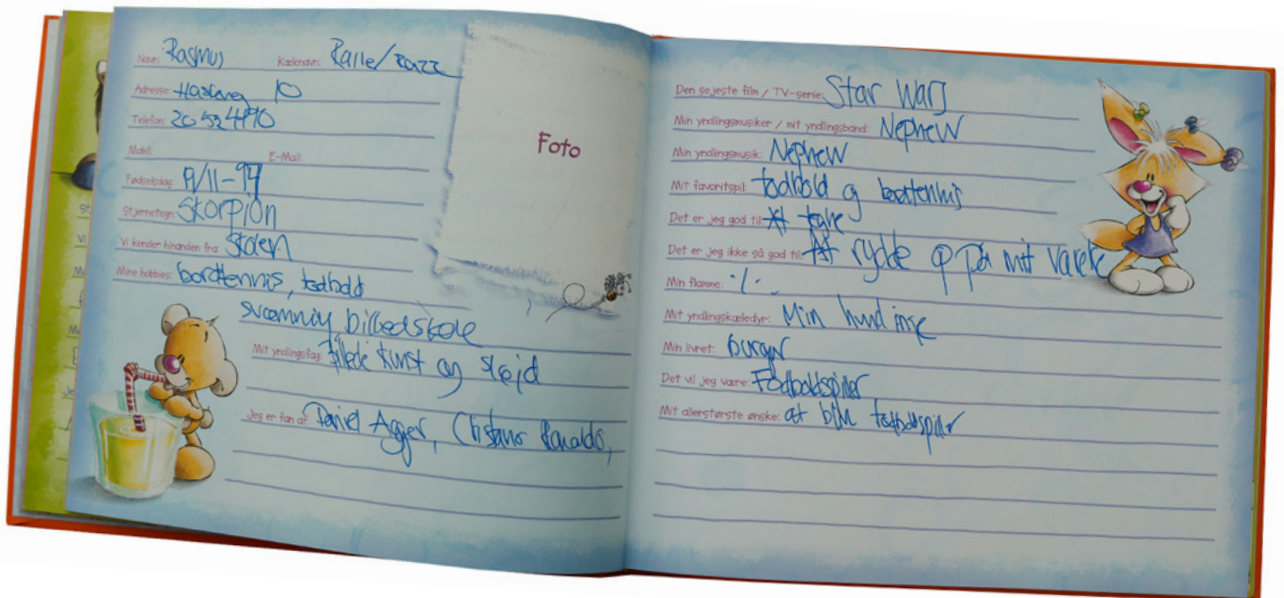 Navn: Rasmus Kælenavn: Ralle/Razz
Adresse: 10
Telefon: 20 52 4190
Mobil: E-Mail:
Foto
Fødselsdag: 9/11-97
Stjernetegn: Skorpion
Vi kender hinanden fra: Skolen
Mine hobbies: bordtennis, fodbold
svømning billedskole
Mit yndlingsfag: Billede kunst og sløjd
Jeg er fan af: Daniel Agger, Ronaldo,
Den sejeste film / TV-serie: Star Wars
Min yndlingsmusiker / mit yndlingsband: Nephew
Min yndlingsmusik: Nephew
Mit favoritspil: fodbold og bordtennis
Det er jeg god til: At
Det er jeg ikke så god til: At rydde op på mit
Min flamme: ·/·
Mit yndlingskæledyr: Min hund
Min livret: burger
Det vil jeg være: Fodboldspiller
Mit allerstørste ønske: at blive fodboldspiller